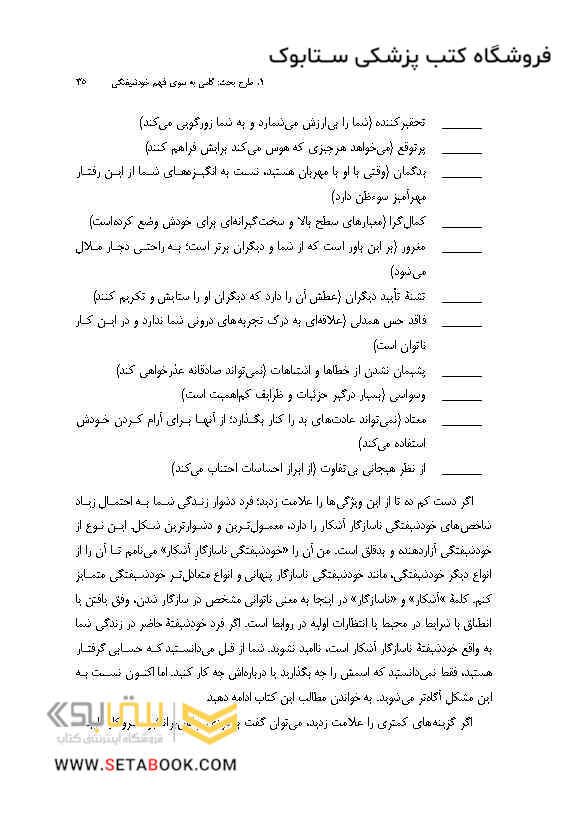 فروشگاه کتب پزشکی ستابوک
۱. طرح بحث: گامی به سوی فهم خودشیفتگی ۳۵
______ تحقیرکننده (شما را بی‌ارزش می‌شمارد و به شما زورگویی می‌کند)
______ پرتوقع (می‌خواهد هرچیزی که هوس می‌کند برایش فراهم کنند)
______ بدگمان (وقتی با او با مهربان هستید، نسبت به انگیزه‌های شما از این رفتار
مهرآمیز سوءظن دارد)
______ کمال‌گرا (معیارهای سطح بالا و سخت‌گیرانه‌ای برای خودش وضع کرده‌است)
______ مغرور (بر این باور است که از شما و دیگران برتر است؛ به راحتی دچار ملال
می‌شود)
______ تشنهٔ تأیید دیگران (عطش آن را دارد که دیگران او را ستایش و تکریم کنند)
______ فاقد حس همدلی (علاقه‌ای به درک تجربه‌های درونی شما ندارد و در این کار
ناتوان است)
______ پشیمان نشدن از خطاها و اشتباهات (نمی‌تواند صادقانه عذرخواهی کند)
______ وسواسی (بسیار درگیر جزئیات و ظرایف کم‌اهمیت است)
______ معتاد (نمی‌تواند عادت‌های بد را کنار بگذارد؛ از آنها برای آرام کردن خودش
استفاده می‌کند)
______ از نظر هیجانی بی‌تفاوت (از ابراز احساسات اجتناب می‌کند)
اگر دست کم ده تا از این ویژگی‌ها را علامت زدید؛ فرد دشوار زندگی شما به احتمال زیاد
شاخص‌های خودشیفتگی ناسازگار آشکار را دارد، معمول‌ترین و دشوارترین شکل. این نوع از
خودشیفتگی آزاردهنده و بدقلق است. من آن را «خودشیفتگی ناسازگارِ آشکار» می‌نامم تا آن را از
انواع دیگر خودشیفتگی، مانند خودشیفتگی ناسازگار پنهانی و انواع متعادل‌تر خودشیفتگی متمایز
کنم. کلمهٔ »آشکار» و «ناسازگار» در اینجا به معنی ناتوانی مشخص در سازگار شدن، وفق یافتن با
انطباق با شرایط در محیط با انتظارات اولیه در روابط است. اگر فرد خودشیفتهٔ حاضر در زندگی شما
به واقع خودشیفتهٔ ناسازگار آشکار است، ناامید نشوید. شما از قبل می‌دانستید که حسابی گرفتار
هستید، فقط نمی‌دانستید که اسمش را چه بگذارید یا درباره‌اش چه کار کنید. اما اکنون نسبت به
این مشکل آگاه‌تر می‌شوید. به خواندن مطالب این کتاب ادامه دهید.
اگر گزینه‌های کمتری را علامت زدید، می‌توان گفت
بیتابوک
فروشگاه اینترنتی کتاب
WWW.SETABOOK.COM